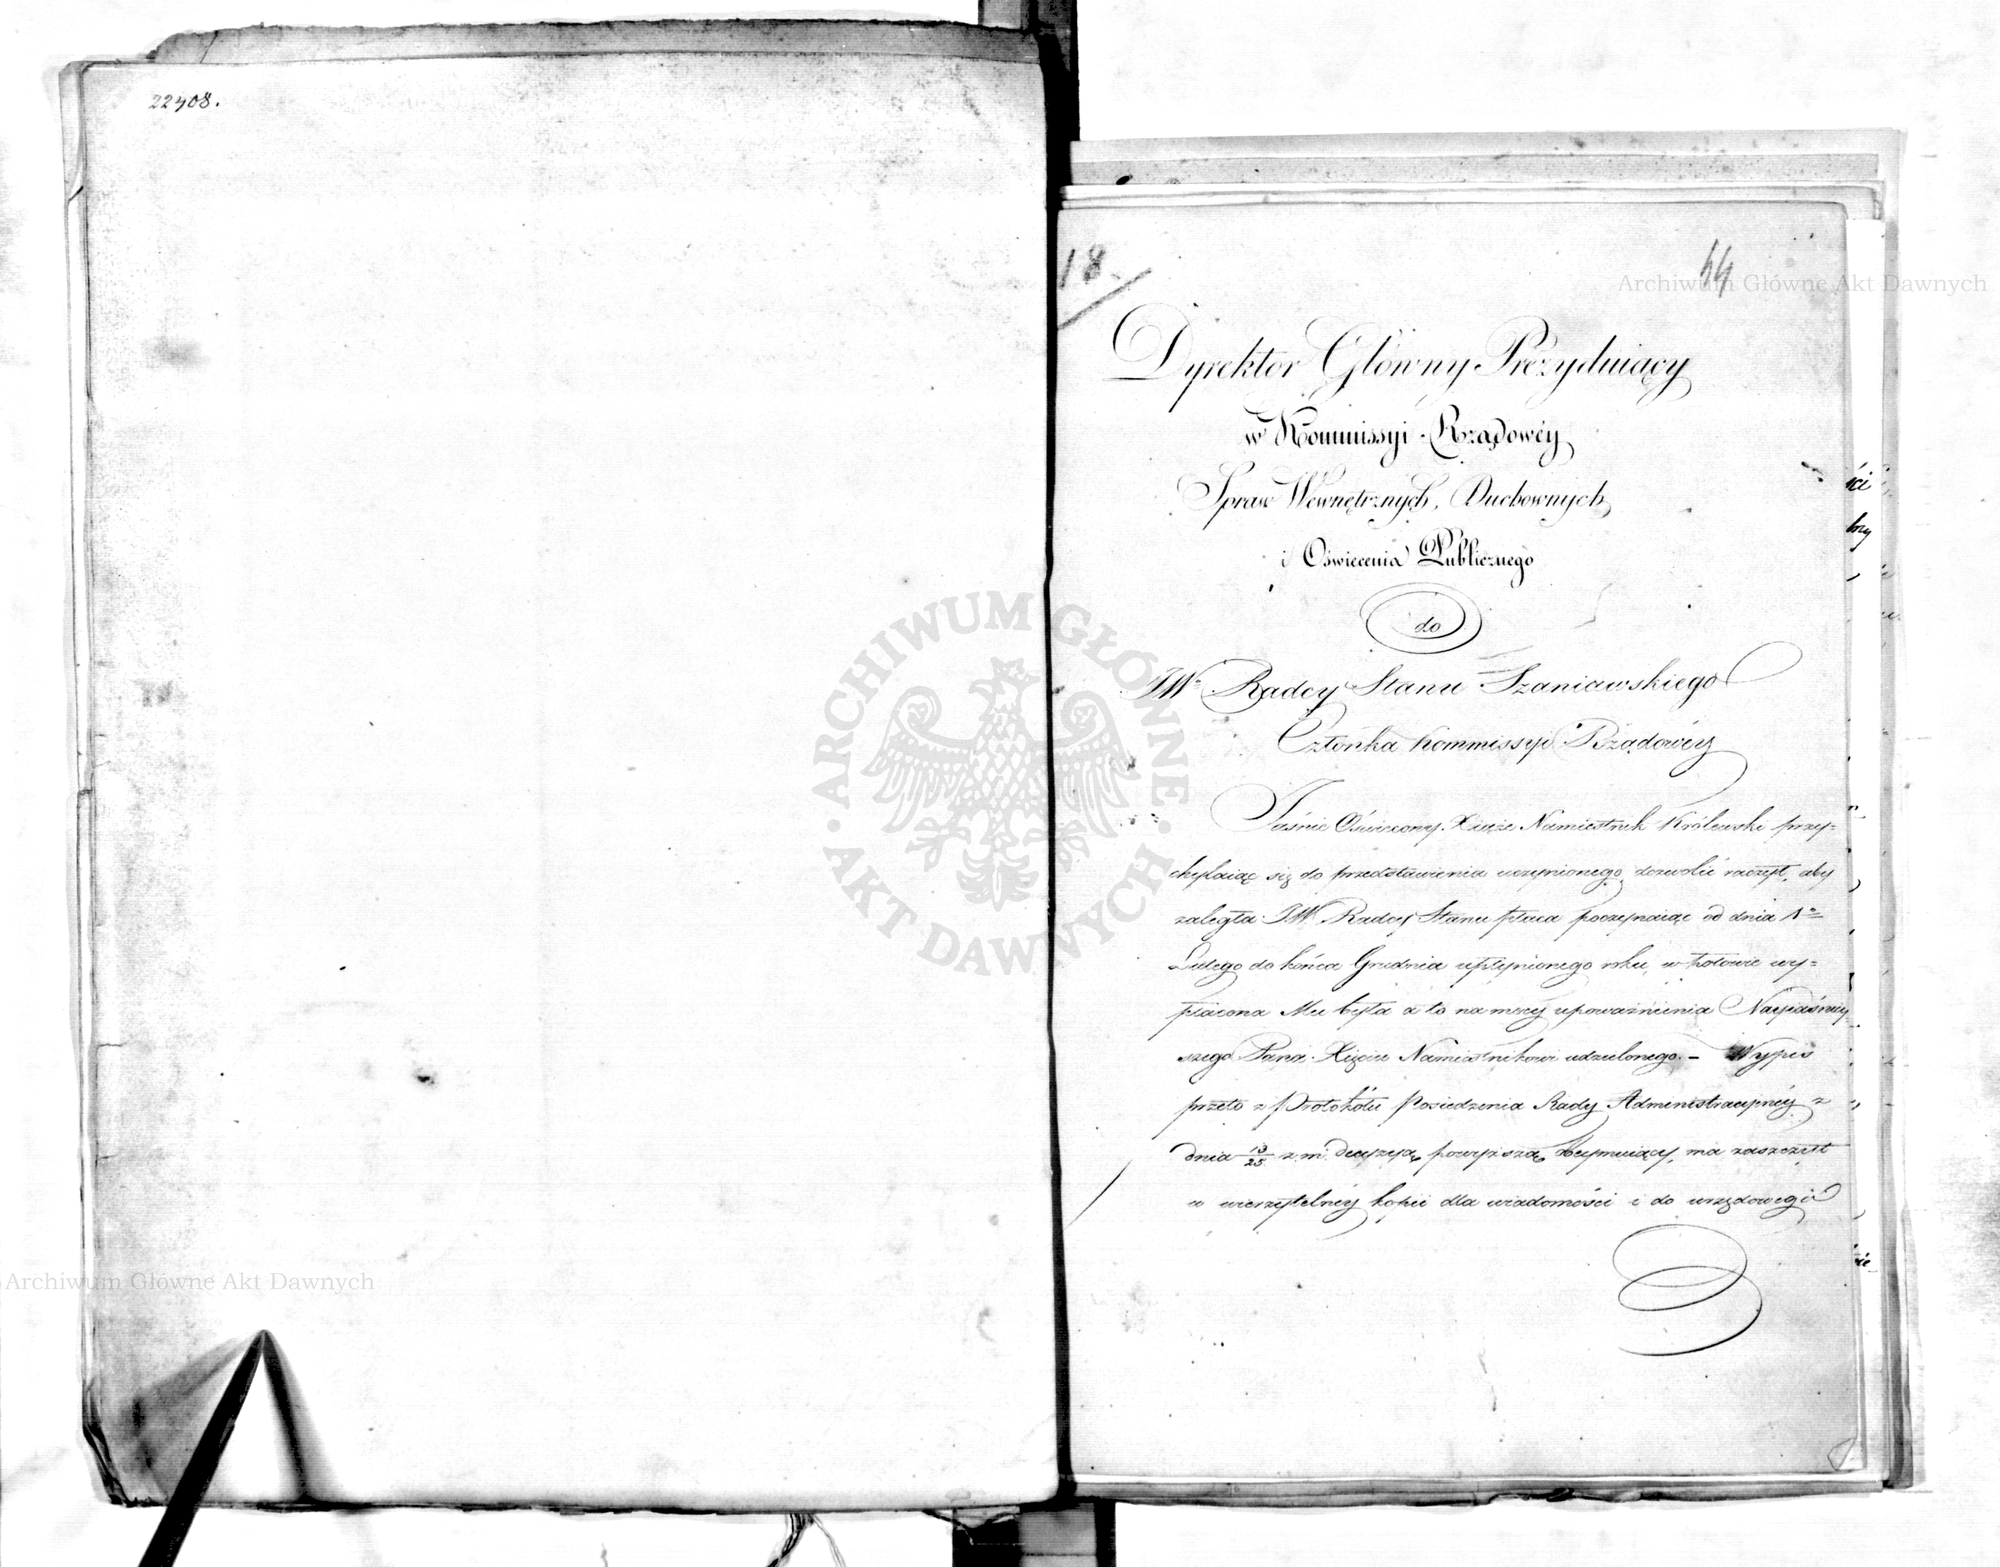 22408.
18
44
Archiwum Główne Akt Dawnych
Dyrektor Główny Prezyduiący
w Kommissyi Rządowéy
Spraw Wewnętrznych, Duchownych
i Oświecenia Publicznego
do
JWo Radcy Stanu Szaniawskiego
Członka Kommissyi Rządowéy
Jaśnie Oświecony Xiąże Namiestnik Królewski przy=
chylaiąc się do przedstawienia uczynionego, dozwolić raczył, aby
zaległa JW. Radcy Stanu płaca począwszy od dnia 1o
Lutego do końca Grudnia upłynionego roku, w połowie wy=
płacona Mu była a to na mocy upoważnienia Nayiaśniey
szego Pana Xięciu Namiestnikowi udzielonego. – Wypis
przeto z Protokółu Posiedzenia Rady Administracyinéy z
dnia 13/25 z. m. decyzyą powyższą obeymuiący, ma zaszczyt
w wierzytelnéy kopii dla wiadomości i do urzędowego
ści
ARCHIWUM GŁÓWNE
AKT DAWNYCH
Archiwum Główne Akt Dawnych